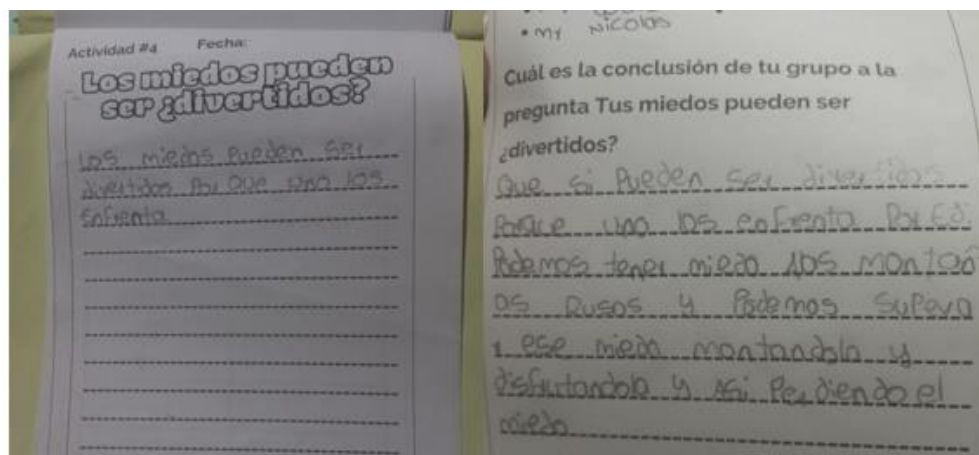 Actividad #4 Fecha:
Los miedos pueden
ser ¿divertidos?
Los miedos pueden ser
divertidos Por Que uno los
enfrenta
• my Nicolas
Cuál es la conclusión de tu grupo a la
pregunta Tus miedos pueden ser
¿divertidos?
Que si Pueden ser divertidos
Porque uno los enfrenta Por
Podemos tener miedo
as Rusas y Podemos supera
r ese miedo montandola y
disfrutandola y asi Perdiendo el
miedo